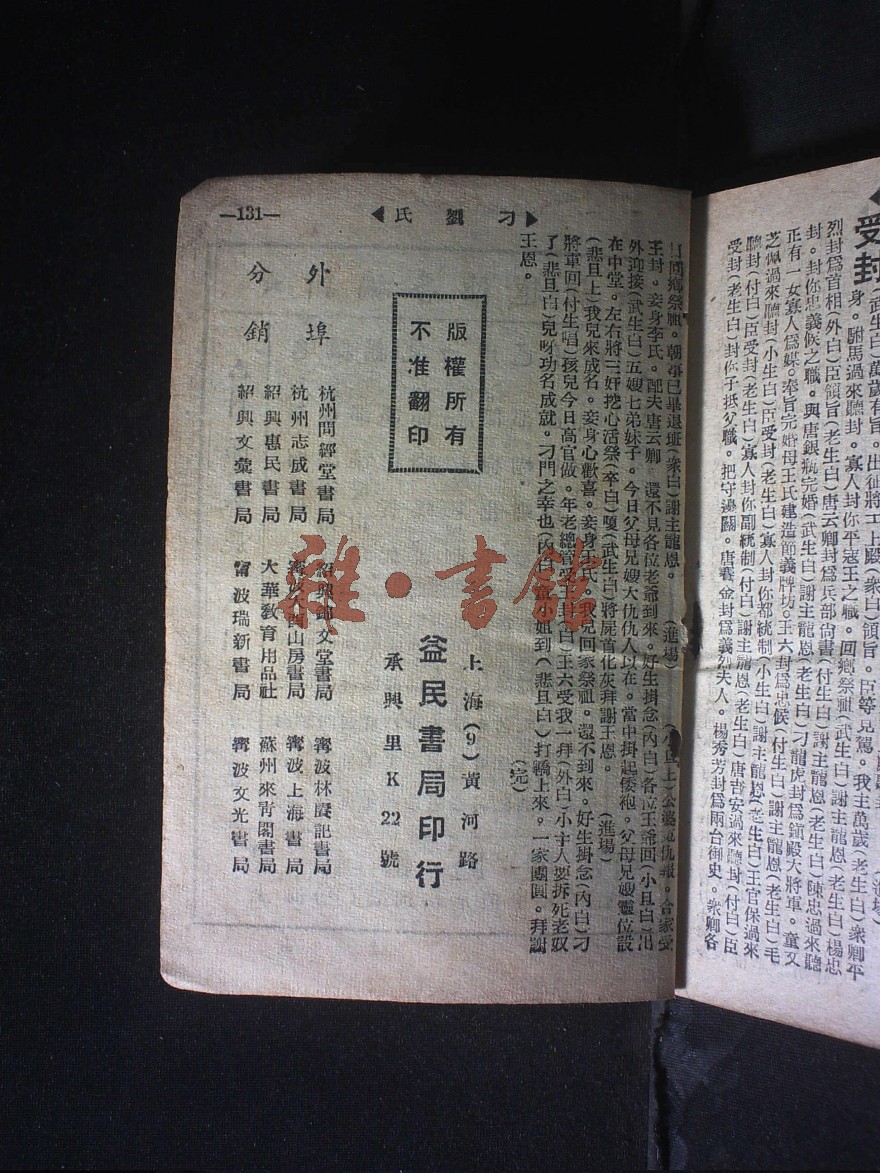 受封
武生白)萬歲有旨。出征將士上殿(衆白)領旨。臣等見駕。我主萬歲(老生白)衆卿平
身。駙馬過來聽封。寡人封你平寇王之職。回鄉祭祖(武生白)謝主龍恩(老生白)楊忠
烈封爲首相(外白)臣領旨(老生白)唐云卿封爲兵部尙書(付生白)謝主龍恩(老生白)陳忠過來聽
封。封你忠義候之職。與唐銀瓶完婚(武生白)謝主龍恩(老生白)刁龍虎封爲鎭殿大將軍。童文
正有一女寡人爲媒。奉旨完婚母王氏建造節義牌坊。王六封爲忠候(付生白)謝主龍恩(老生白)毛
芝佩過來聽封(小生白)臣受封(老生白)寡人封你都統制(小生白)謝主龍恩(老生白)王官保過來
聽封(付白)臣受封(老生白)寡人封你副統制(付白)謝主龍恩(老生白)唐吉安過來聽封(付白)臣
受封(老生白)封你子抵父職。把守邊關。唐賽金封爲義烈夫人。楊秀芳封爲兩台御史。衆卿各
刁劉氏
—131—
回鄉祭祖。朝事已畢退班(衆白)謝主龍恩。(進場)(小旦上)公婆冤仇報。合家受
王封。妾身李氏。配夫唐云卿 還不見各位老爺到來。好生掛念(內白)各位王爺回(小旦白)出
外迎接(武生白)五嫂七弟妹子。今日父母兄嫂大仇仇人以在。當中掛起倭袍。父母兄嫂靈位設
在中堂。左右將三奸挖心活祭(卒白)嗄(武生白)將屍首化灰拜謝王恩。(進場)
(悲旦上)我兒來成名。妾身心歡喜。妾身王氏。我兒回家祭祖。還不到來。好生掛念(內白)刁
將軍回(付生唱)孩兒今日高官做。年老總管受王封(白)王六受我一拜(外白)小主人要拆死老奴
了(悲旦白)兒呀功名成就。刁門之幸也(內白)童小姐到(悲旦白)打轎上來。一家團圓。拜謝
王恩。(完)
版權所有
不准翻印
上海(9)黃河路
益民書局印行
承興里K22號
外埠
分銷
杭州問經堂書局
杭州志成書局
紹興惠民書局
紹興文彙書局
紹興文堂書局
山房書局
大華敎育用品社
甯波瑞新書局
甯波林賡記書局
甯波上海書局
蘇州來靑閣書局
甯波文光書局
雜·書館